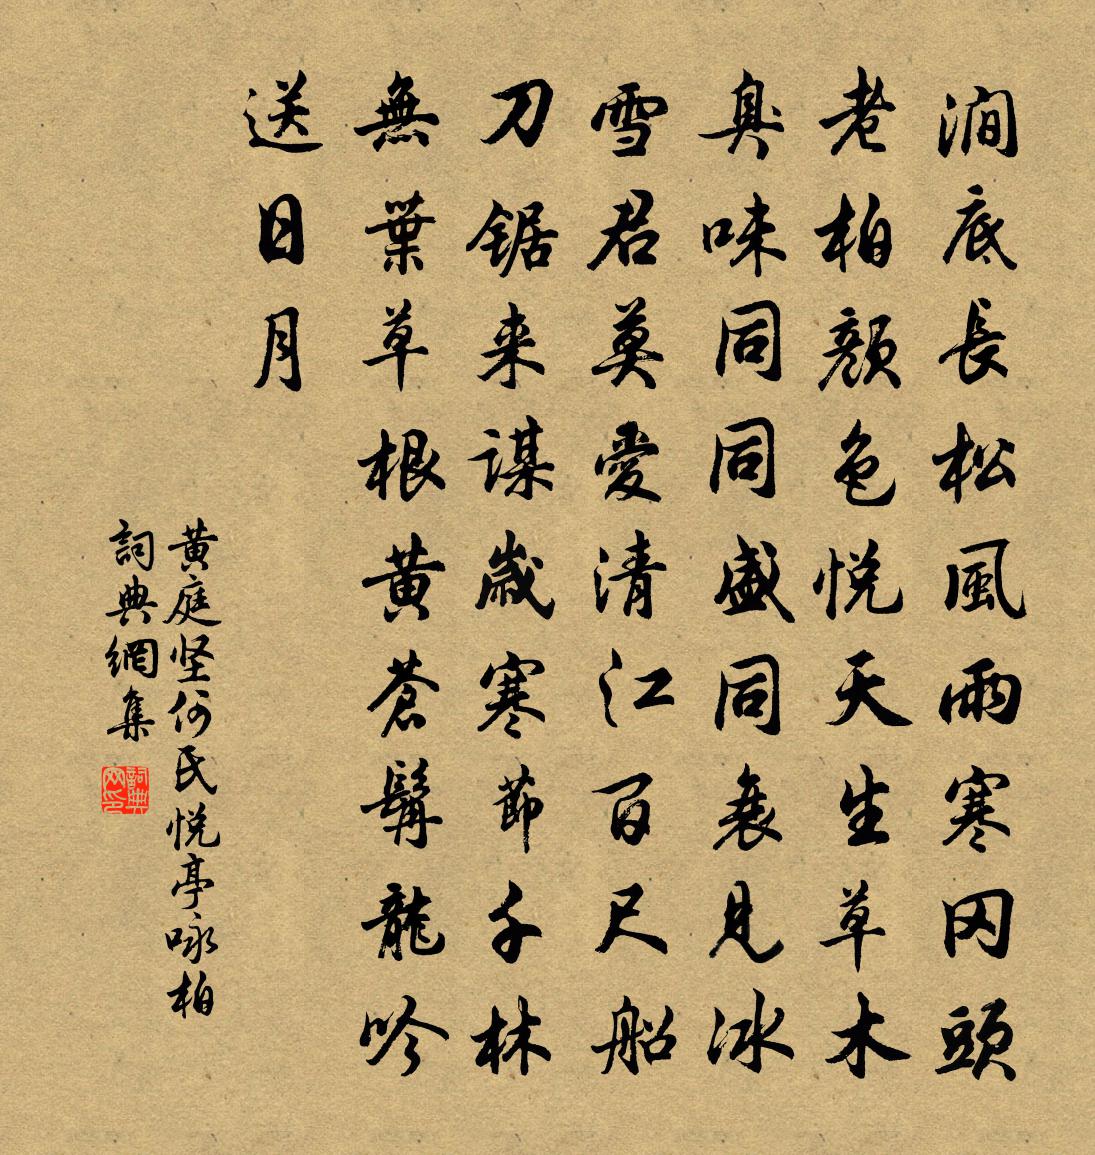 澗底長松風雨寒冈頭
老柏顏色悦天生草木
臭味同同盛同衰見冰
雪君莫愛清江百尺船
刀鋸来謀歲寒節千林
無葉草根黄蒼髯龍吟
送日月
黄庭坚何氏悦亭咏柏
詞典網集
詞典网印